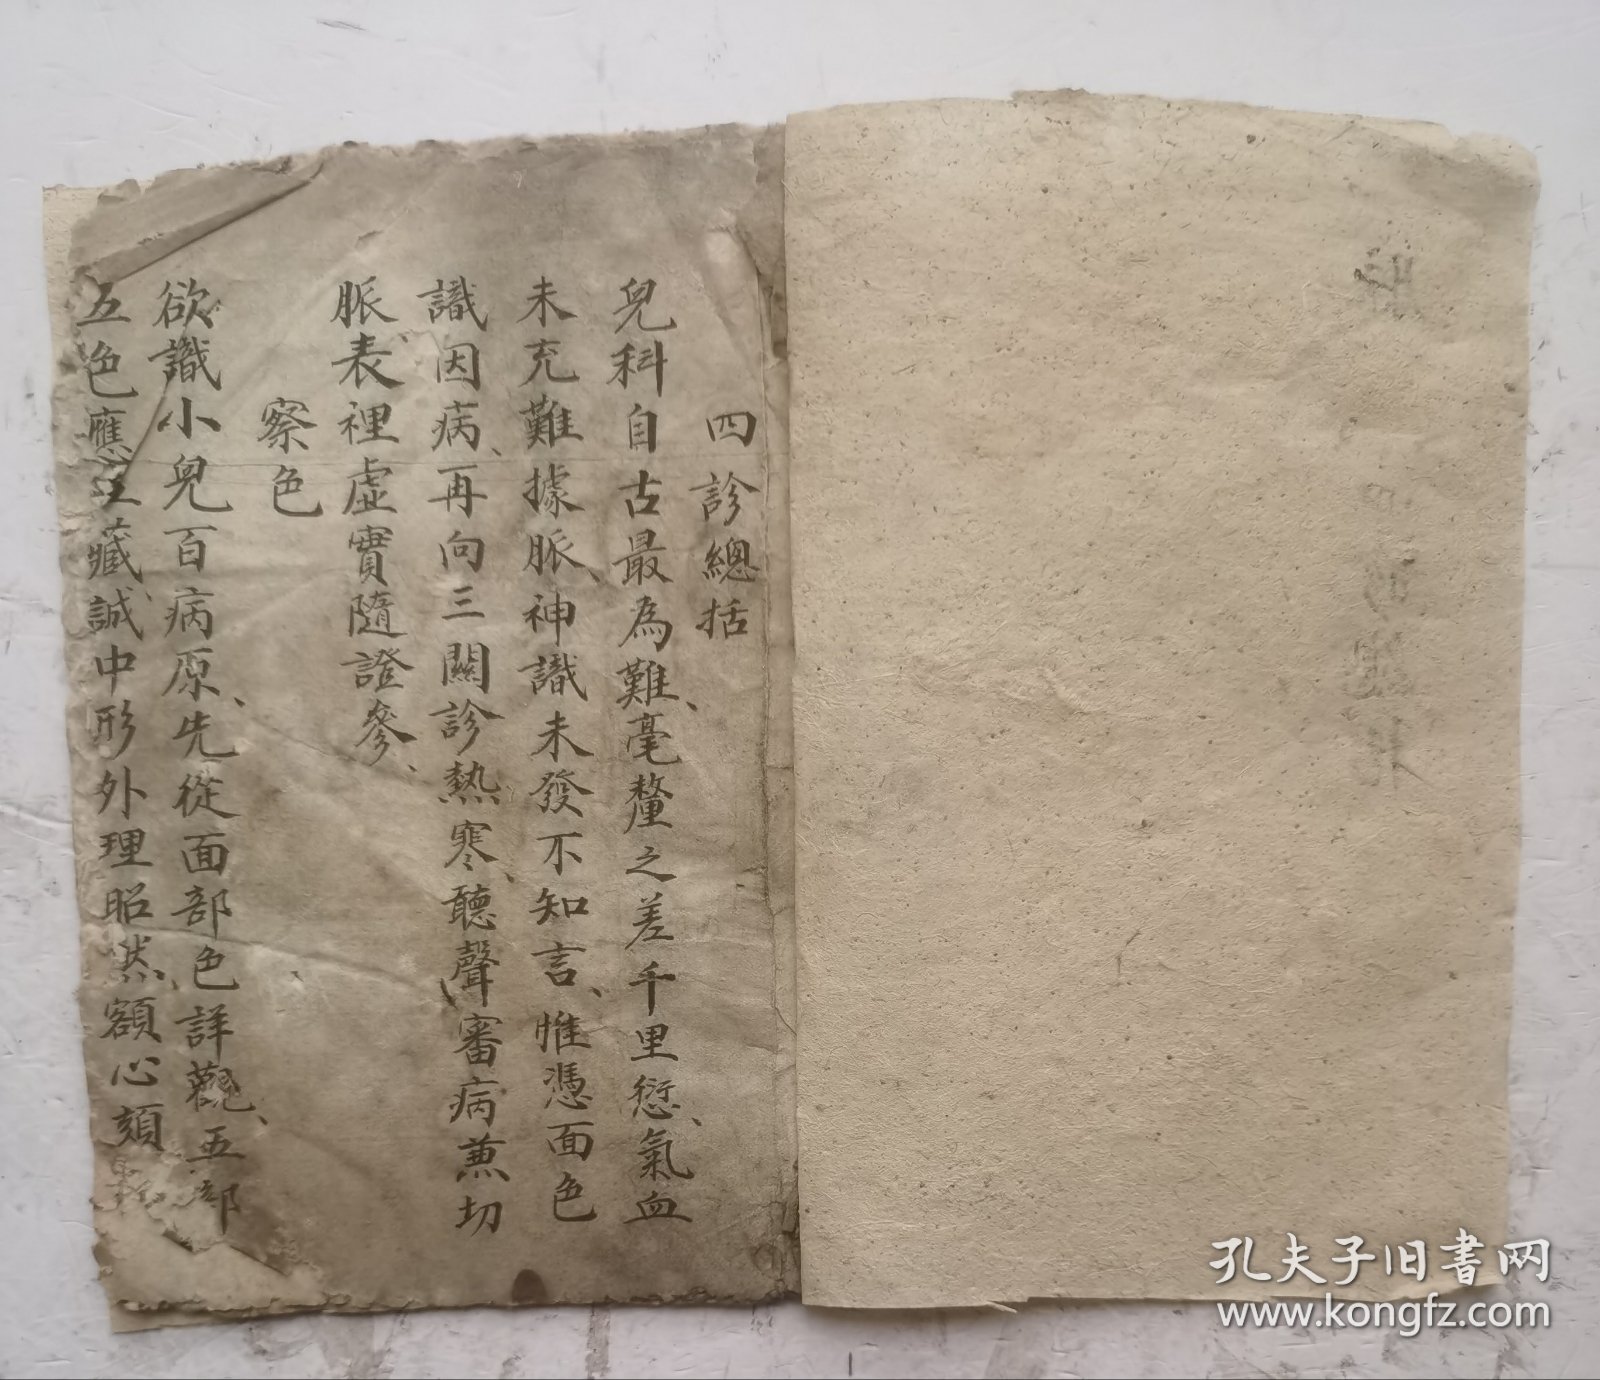 四診總括
兒科自古最為難毫釐之差千里愆氣血
未充難據脈神識未發不知言惟憑面色
識因病再向三關診熱寒聽聲審病兼切
脈表裡虛實隨證參
察色
欲識小兒百病原先從面部色詳觀五部
五色應五藏誠中形外理昭然額心頦
孔夫子旧书网
www.kongfz.com